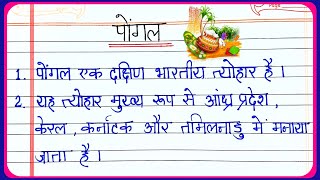 पोंगल
1. पोंगल एक दक्षिण भारतीय त्योहार है।
2. यह त्योहार मुख्य रूप से आंध्र प्रदेश,
केरल, कर्नाटक और तमिलनाडु में मनाया
जाता है।